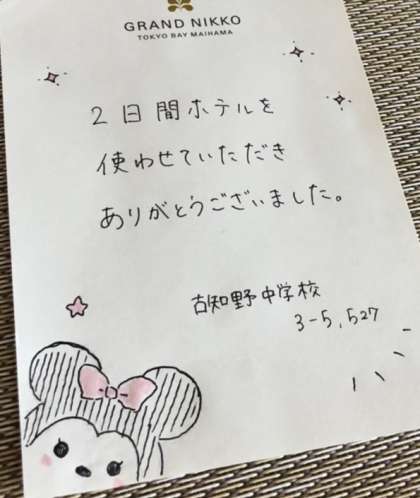 GRAND NIKKO
TOKYO BAY MAIHAMA
2日間ホテルを
使わせていただき
ありがとうございました。
古知野中学校
3-5,527